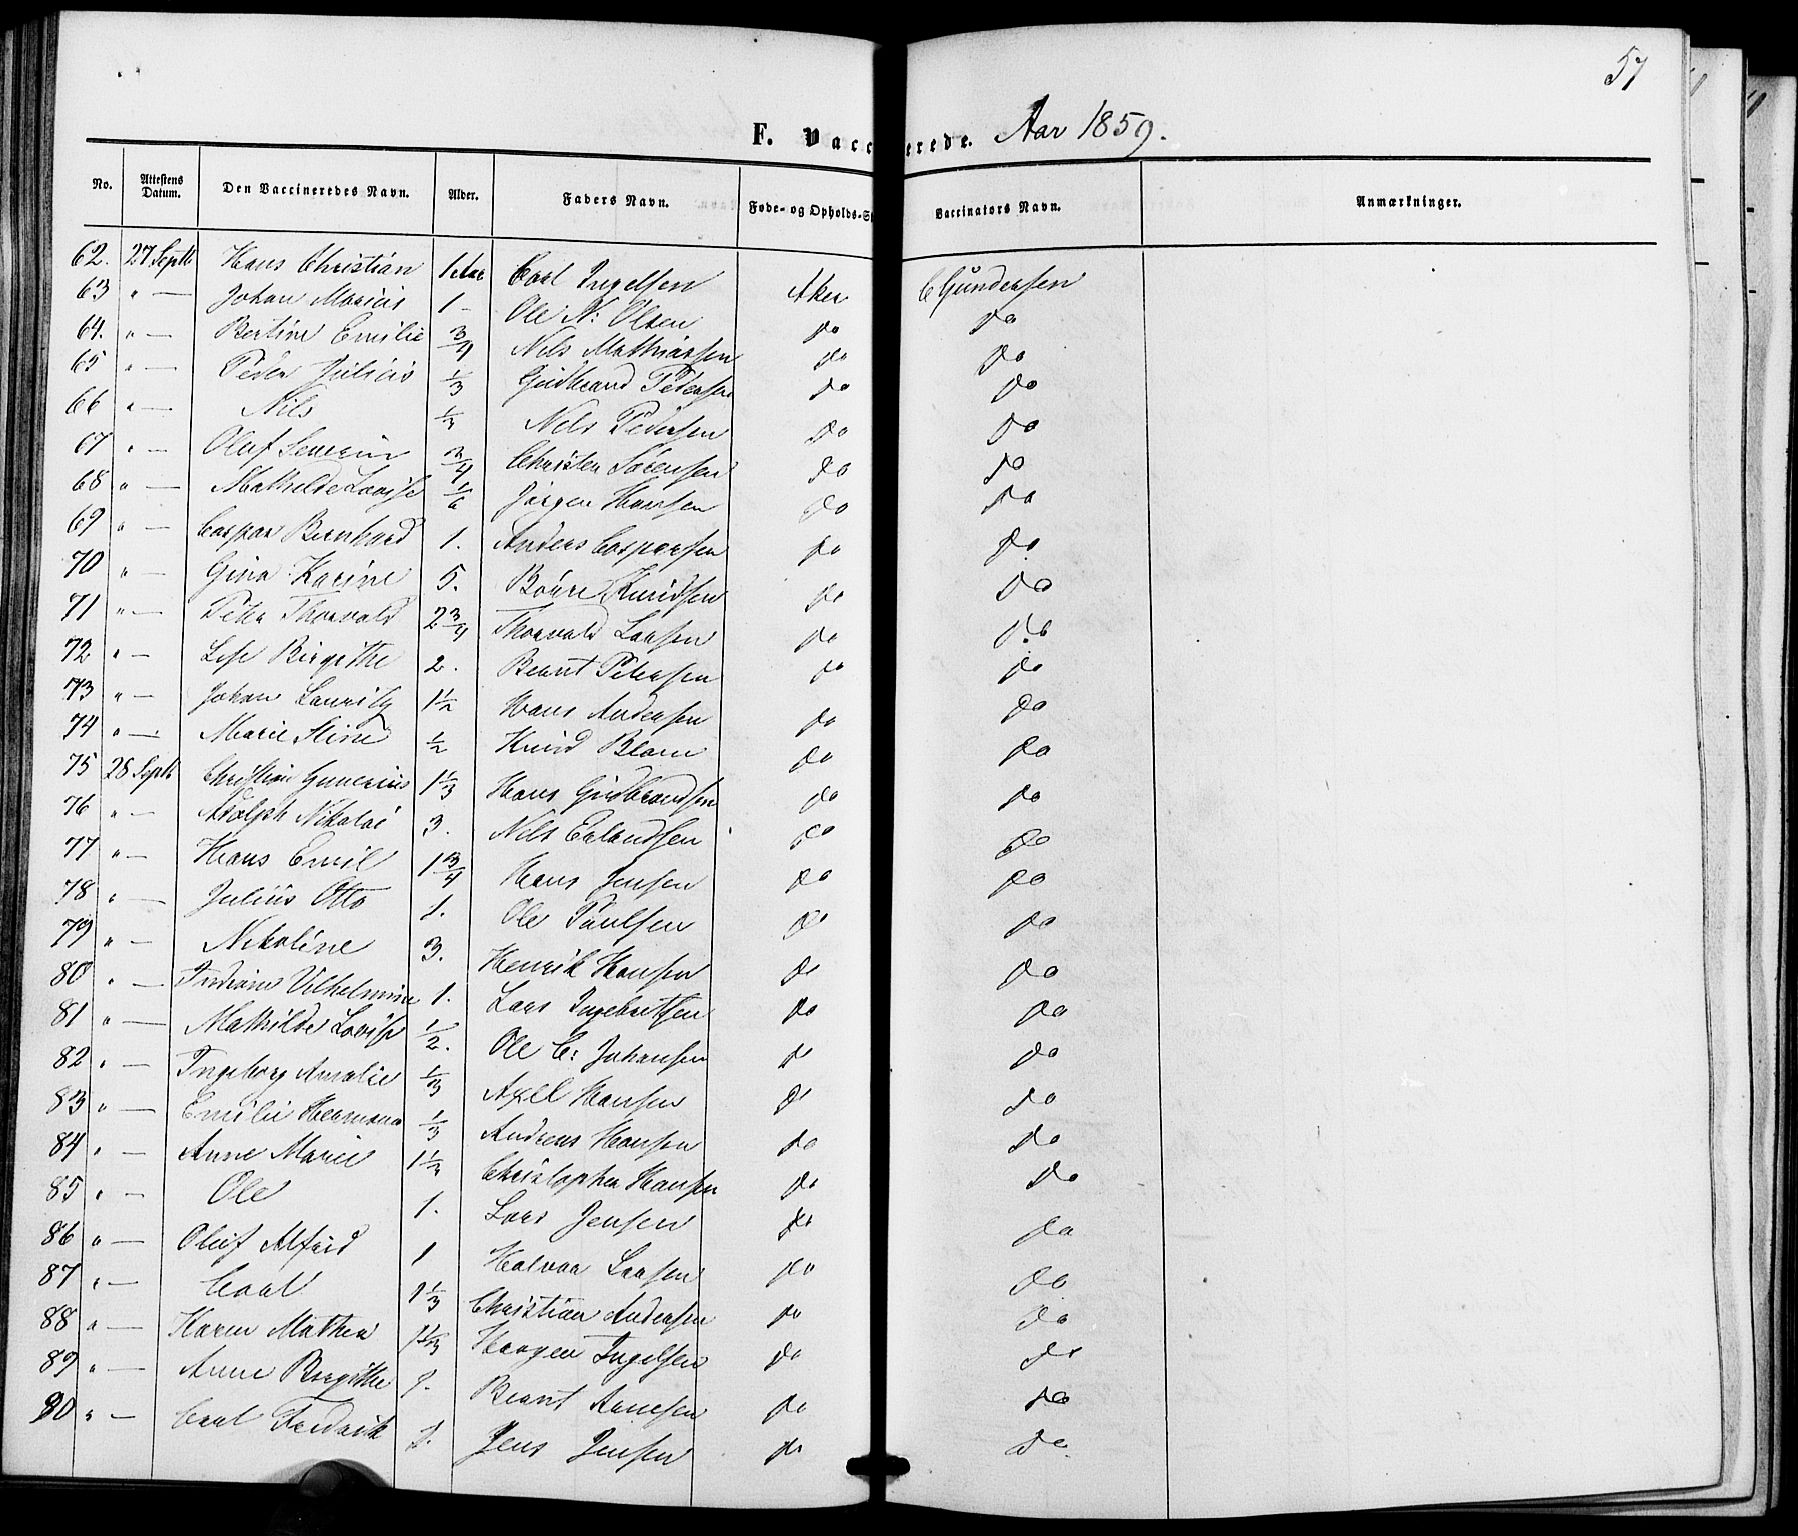 57
F. Vaccinerede. Aar 1859.
No. Attestens Datum. Den Vaccineredes Navn. Alder. Faders Navn. Føde- og Opholds-St Vaccinators Navn. Anmærkninger.
62. 27 Septb Hans Christian 1 Aar Carl Ingelsen Aker C Gundersen
63 " — Johan Marius 1 - Ole N: Olsen do do
64. " — Bertine Emilie 3/4 Nils Mathiassen do do
65 " — Peder Julius 1/3 Gudbrand Petersen do do
66 " — Nils Nels Pedersen do do
67 " — Oluf Severin 3/4 Christen Sørensen do do
68 " — Mathilde Lovise 1/6 Jørgen Hansen do do
69 " — Caspar Bernhard 1. Anders Caspersen do do
70 " — Gina Karine 5. Knudsen do do
71 " — Peter Thorvald 2 3/4 Thorvald Larsen do do
72 " — Lise Birgithe 2. Bernt Petersen do do
73 " — Johan Lauritz 1 1/2 Hans Andersen do do
74 " — Marie Stine 1/2 Knud Blom do do
75 28 Septb Christian Gunerius 1 1/3 Hans Gudbrandsen do do
76 " — Adolph Nikolai 3. Nils Erlandsen do do
77 " — Hans Emil 1 3/4 Hans Jensen do do
78 " — Julius Otto 1. Ole Paulsen do do
79 " — Nikoline 3. Henrik Hansen do do
80 " — Vilhelmine 1. Lars Ingebretsen do do
81 " — Mathilde Lovise 1/2. Ole C: Johansen do do
82 " — Ingeborg Amalie 1/3 Axel Hansen do do
83 " — Emilie Hermana 1/3 Andreas Hansen do do
84 " — Anne Marie 1 1/2 Christopher Hansen do do
85 " — Ole 1. Lars Jensen do do
86 " — Oluf Alfred 1 Halvor Larsen do do
87 " — Carl 1 1/3 Christian Andersen do do
88 " — Karen Mathea 1 1/3 Haagen Ingelsen do do
89 " — Anne Birgithe 1. Bernt Arnesen do do
90 " — Carl Fredrik 1. Jens Jensen do do